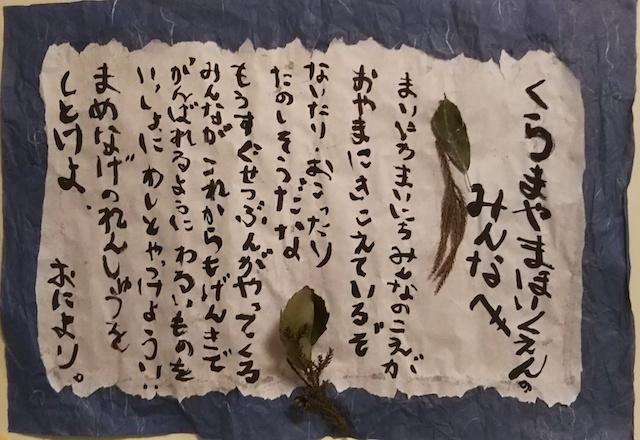 くらまやまほいくえんの
みんなへ
まいにちまいにちみんなのこえが
おやまにきこえているぞ
ないたり・おこったり
たのしそうだな
もうすぐせつぶんがやってくる
みんながこれからもげんきで
がんばれるようにわるいものを
いっしょにわしとやっつけよう!!
まめなげのれんしゅうを
しとけよ、
おにより。